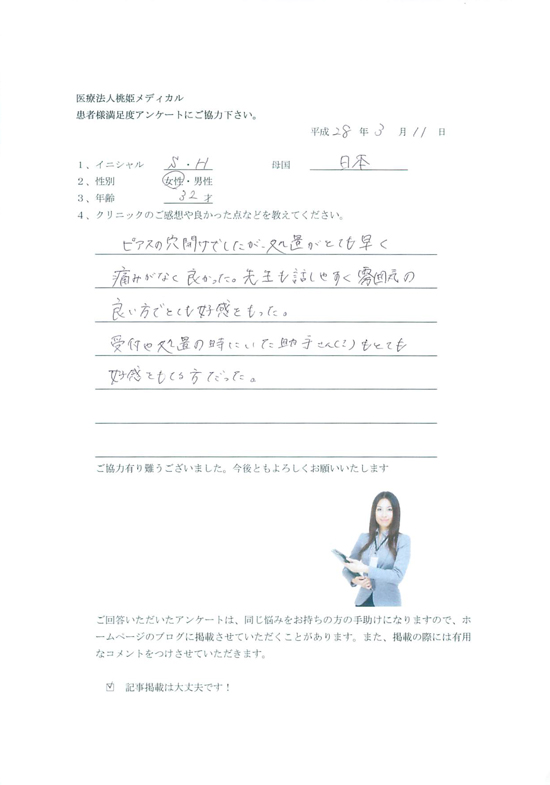 医療法人桃姫メディカル
患者様満足度アンケートにご協力下さい。
平成 28 年 3 月 11 日
1、イニシャル S・H 母国 日本
2、性別 女性・男性
3、年齢 32才
4、クリニックのご感想や良かった点などを教えてください。
ピアスの穴開けでしたが、処置がとても早く
痛みがなく良かった。先生も話しやすく雰囲気の
良い方でとても好感をもった。
受付や処置の時にいた助手さん(?)もとても
好感をもてる方だった。
ご協力有り難うございました。今後ともよろしくお願いいたします
ご回答いただいたアンケートは、同じ悩みをお持ちの方の手助けになりますので、ホ
ームページのブログに掲載させていただくことがあります。また、掲載の際には有用
なコメントをつけさせていただきます。
☑ 記事掲載は大丈夫です！